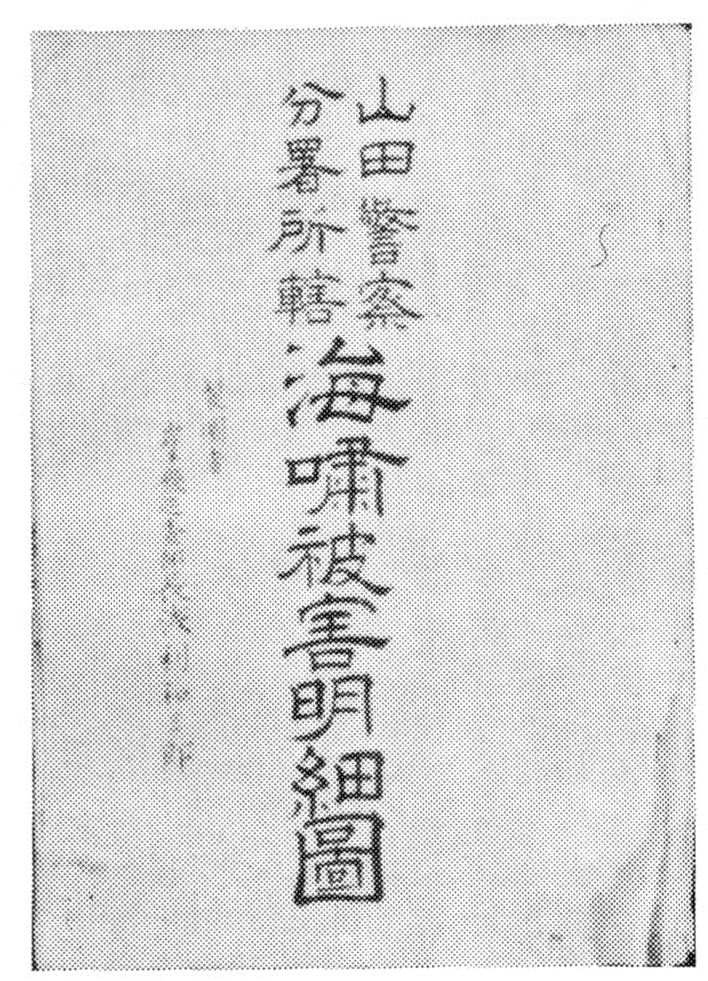 山田警察
分署所轄
海嘯被害明細圖